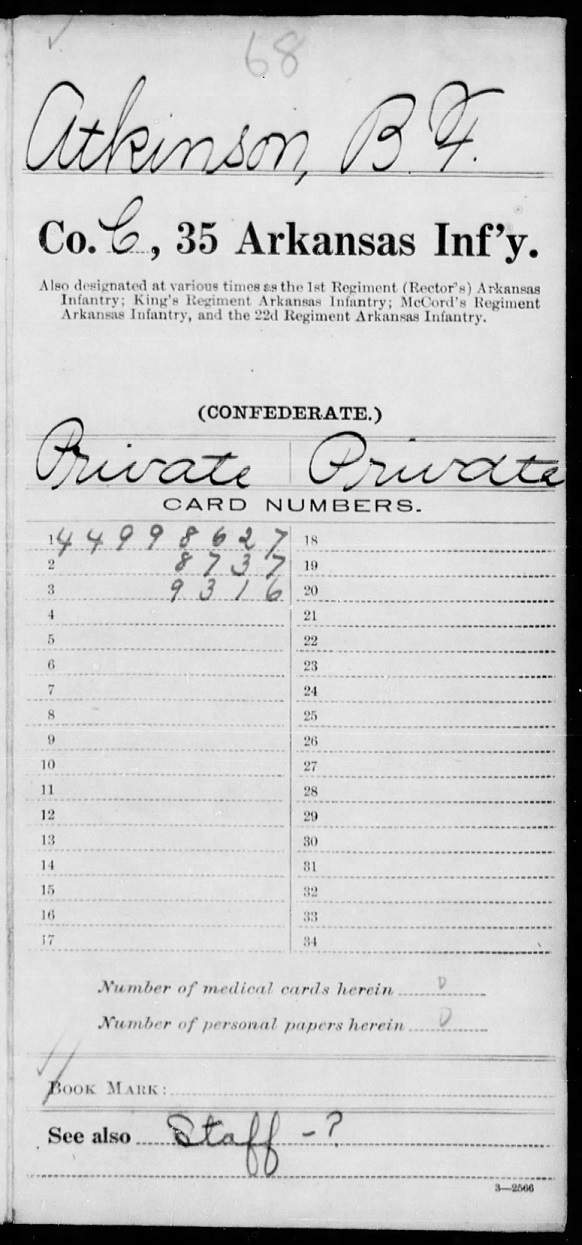 68
Atkinson, B. F.
Co. C, 35 Arkansas Inf'y.
Also designated at various times as the 1st Regiment (Rector's) Arkansas
Infantry; King's Regiment Arkansas Infantry; McCord's Regiment
Arkansas Infantry, and the 22d Regiment Arkansas Infantry.
(CONFEDERATE.)
Private Private
CARD NUMBERS.
1 44998627 18
2 8737 19
3 9316 20
4 21
5 22
6 23
7 24
8 25
9 26
10 27
11 28
12 29
13 30
14 31
15 32
16 33
17 34
Number of medical cards herein 0
Number of personal papers herein 0
BOOK MARK:
See also Staff - ?
3—2566